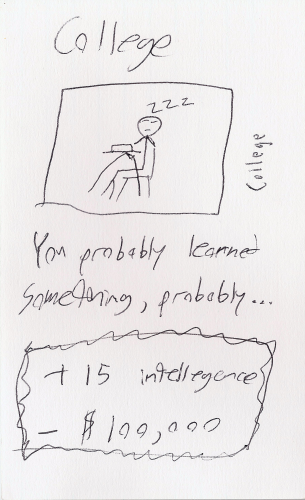 College
zzz
College
You probably learned
something, probably...
+ 15 intellegence
- $100,000